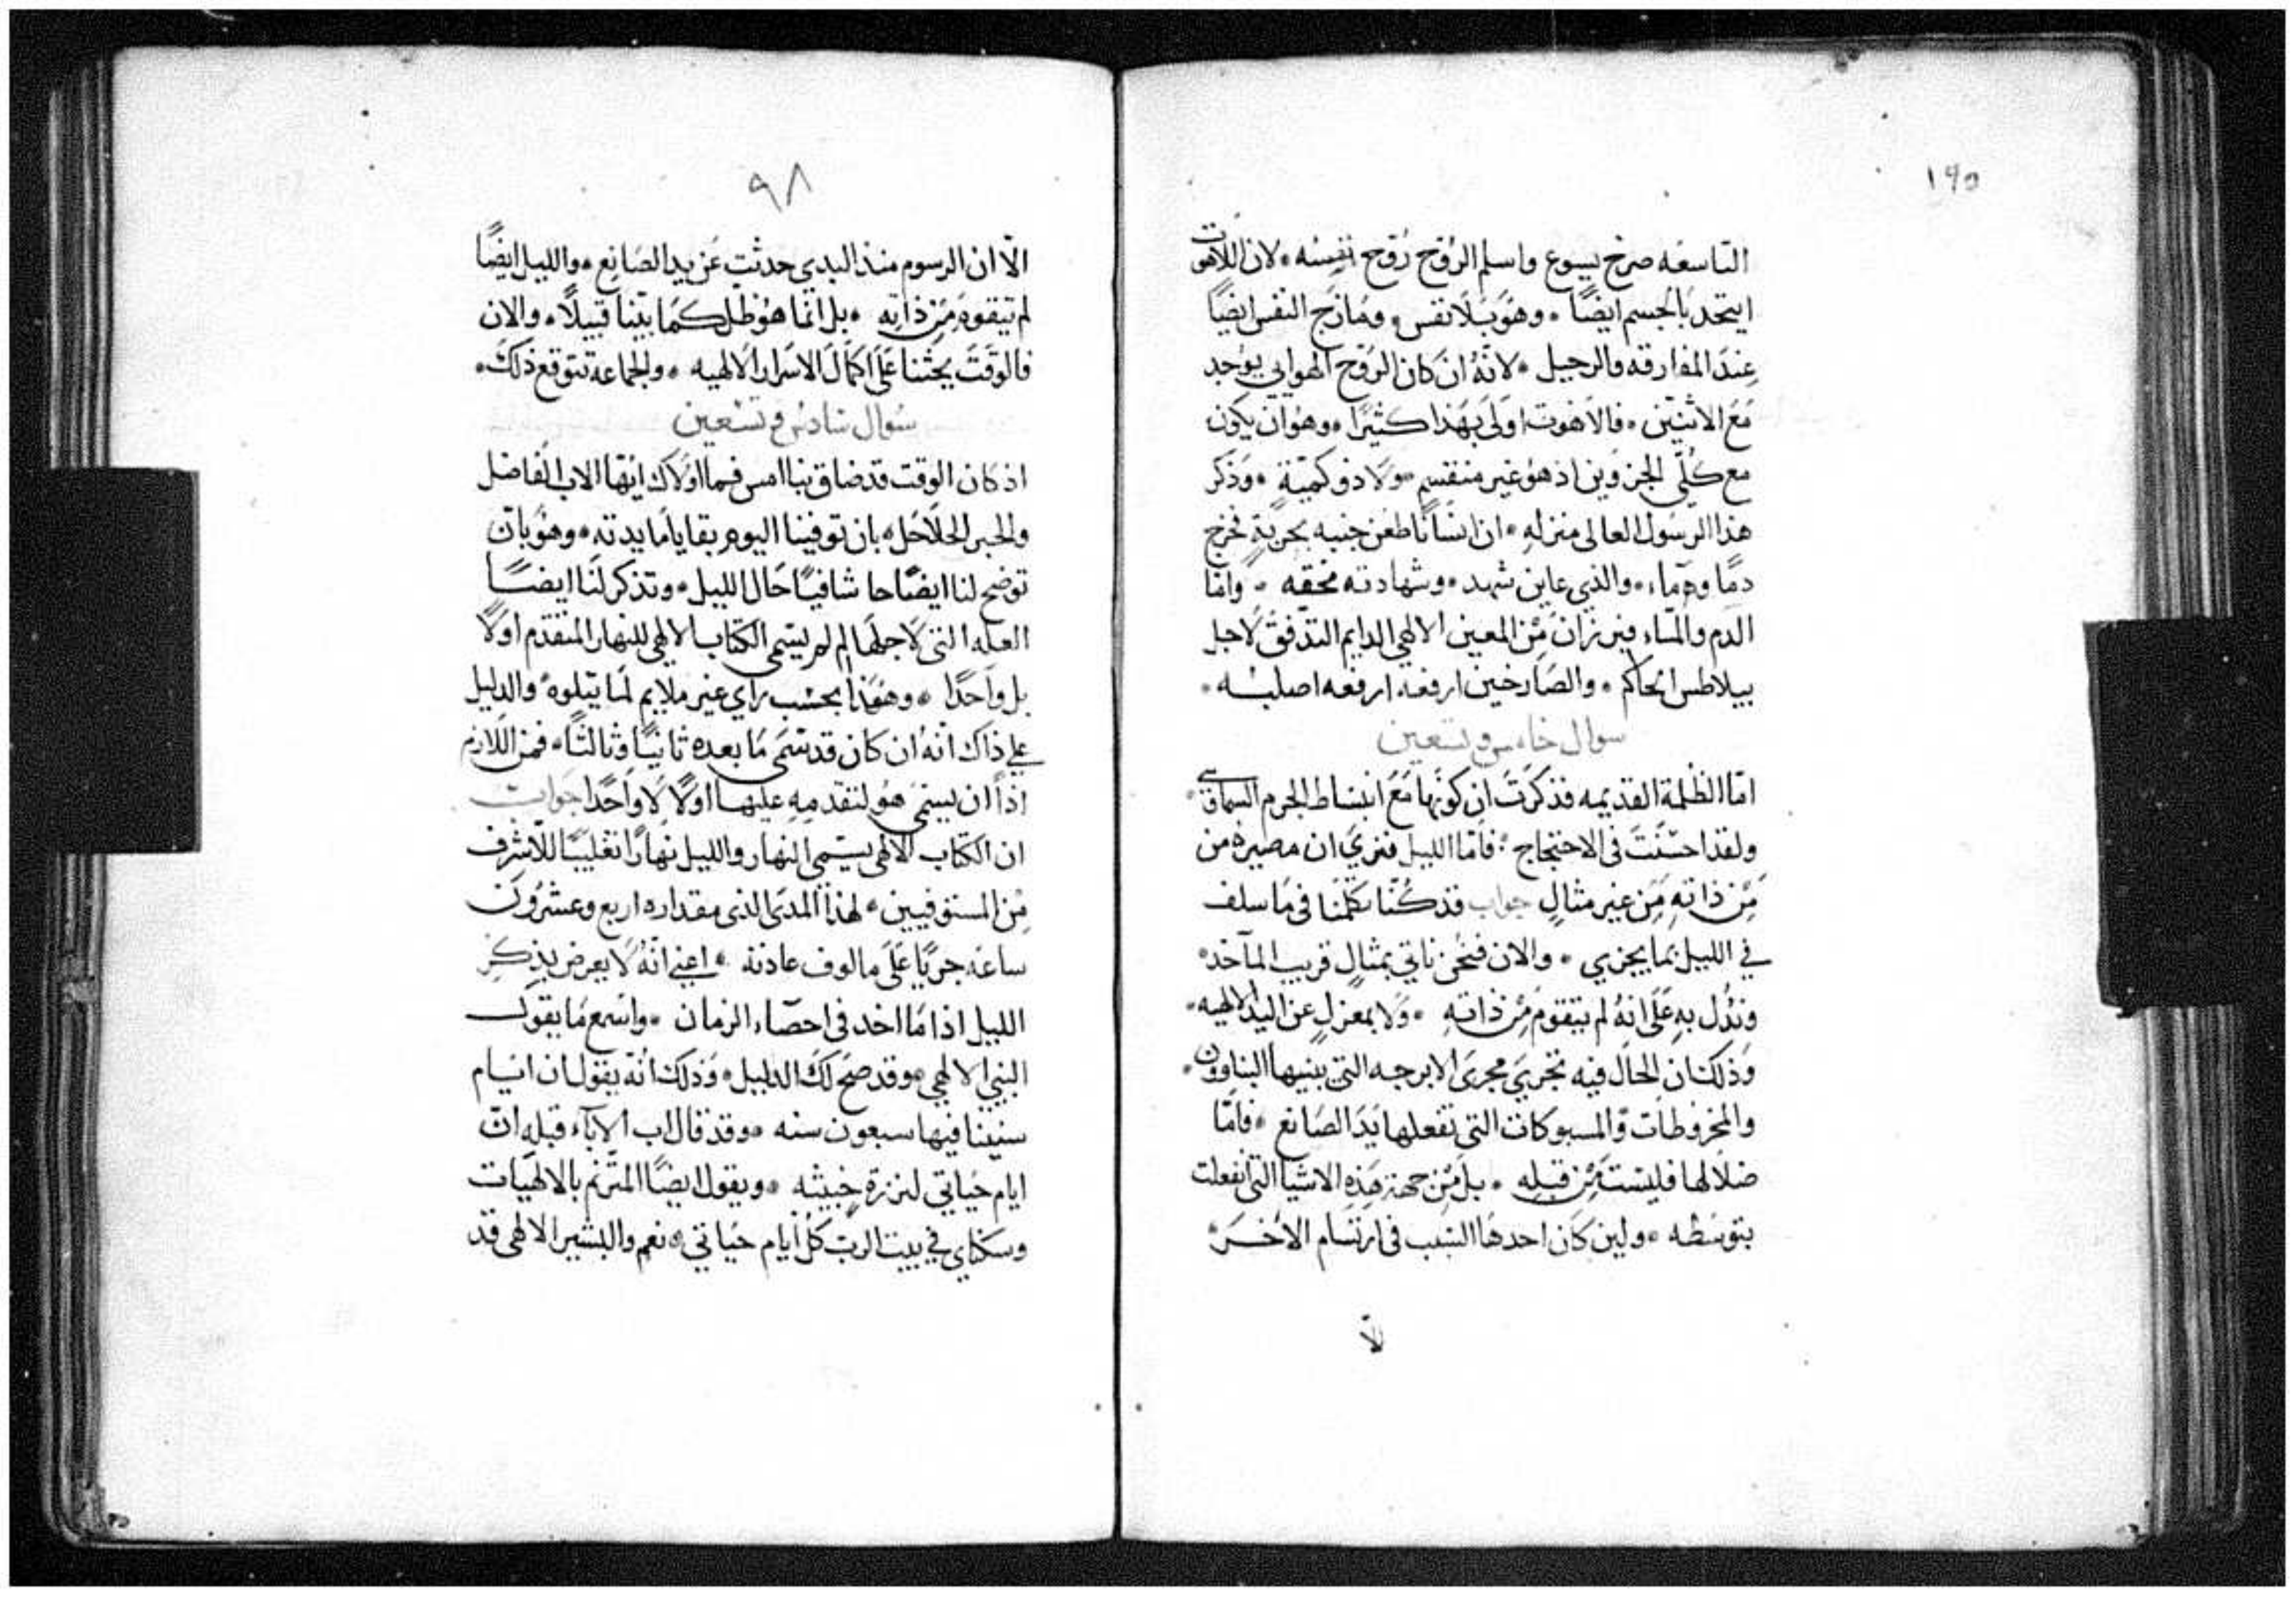 ١٩٥
التاسعه صرخ يسوع واسلم الروح رُوح نفسه ۰ لان اللاهوت
ايتحد بالجسم ايضًا ۰ وهو بلا نفس ومازج النفس ايضًا
عند المفارقه والرحيل ۰ لانه ان كان الروح الهوايي يوجد
مع الاثنين ۰ فالاهوت اولى بهذا كثيرًا ۰ وهو ان يكون
مع كلى الجزوين اذ هو غير منقسم ۰ ولا ذو كميّة ۰ وذكر
هذا الرسول العالى منزله ۰ ان انسانا طعن جنبه بحربةٍ فخرج
دمًا وماء ۰ والذي عاين شهد ۰ وشهادته محقه ۰ واما
الدم والماء فينزان من المعين الالهي الدايم التدفق لاجل
بيلاطس الحاكم ۰ والصارخين ارفعه ارفعه اصلبه ۰
سوال خامس وتسعين
امّا الظلمة القديمه فذكرت ان كونها مع انبساط الجرم السماىي ۰
ولقد احسنت فى الاحتجاج ۰ فاما الليل فنرى ان مصيره من
من ذاته من غير مثالٍ جواب قد كنا تكلمنا فى ما سلف
في الليل بما يجزي ۰ والان فنحن ناتي بمثالٍ قريب المآخذ ۰
وندُل به على انه لم يتقوم من ذاته ۰ ولا بمعزلٍ عن اليد الالهيه ۰
وذلك ان الحال فيه تجرى مجرى الابرجه التى يبنيها البناوون ۰
والمخروطات والمسبوكات التى تفعلها يد الصانع ۰ فامّا
ضلالها فليست من قبله ۰ بل من جهة هذه الاشيا التى انفعلت
بتوسطه ۰ ولين كان احدها السبب فى ارتسام الاخر ۰
الّا
٩٨
الّا ان الرسوم منذ البدي حدثت عن يد الصانع ۰ والليل ايضًا
لم يتقوم من ذاته ۰ بل انما هو ظل كما بيّنا قبيلًا ۰ والان
فالوقت يحثنا على اكمال الاسرار الالهيه ۰ والجماعة تتوقع ذلك ۰
سوال سادس وتسعين
اذ كان الوقت قد ضاق بنا امس فما اولاك ايها الاب الفاضل
والحبر الحلاحل ۰ بان توفينا اليوم بقايا ما بدته ۰ وهو بان
توضح لنا ايضًا حا شافيًا حال الليل ۰ وتذكر لنا ايضًا
العله التى لاجلها لم يسمى الكتاب الالهي للنهار المتقدم اولًا
بل واحدًا ۰ وهذا بحسب راي غير ملايم لما يتلوه والدليل
على ذاك انه ان كان قد سمى ما بعده ثانيًا وثالثًا ۰ فمن اللازم
اذًا ان يسمى هو لتقدمه عليها اولًا لا واحدًا جواب
ان الكتاب الالهى يسمي النهار والليل نهارًا تغليبًا للاشرف
من المستوفيين ۰ لهذا المدى الذى مقداره اربع وعشرون
ساعه جريًا على مالوف عادته ۰ اعني انه لا يعرض بذكر
الليل اذا ما اخد فى احصاء الزمان ۰ واسمع ما يقول
النبي الالهي ۰ وقد صح لك الدليل ۰ وذلك انه يقول ان ايام
سنيننا فيها سبعون سنه ۰ وقد قال اب الآباء قبله ان
ايام حياتي لنزرة خبيثه ۰ ويقول ايضًا المترنم بالالهيات
وسكناي في بيت الرب كل ايام حياتي ۰ نعم والبشير الالهى قد